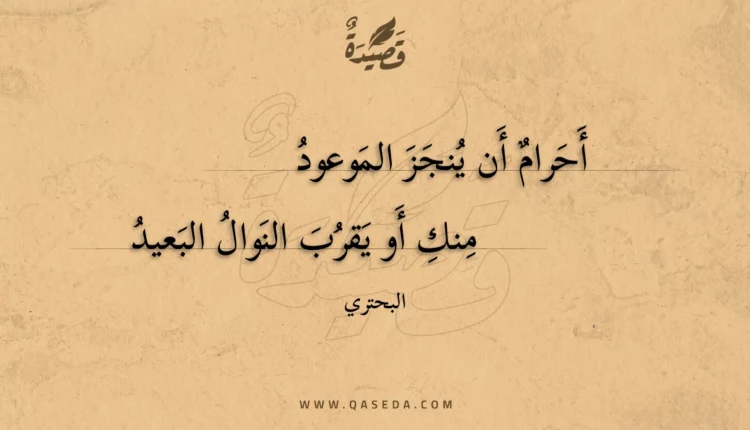 قَصِيدَةٌ
أَحَرامٌ أَن يُنجَزَ المَوعودُ
مِنكِ أَو يَقرُبَ النَوالُ البَعيدُ
البحتري
WWW.QASEDA.COM